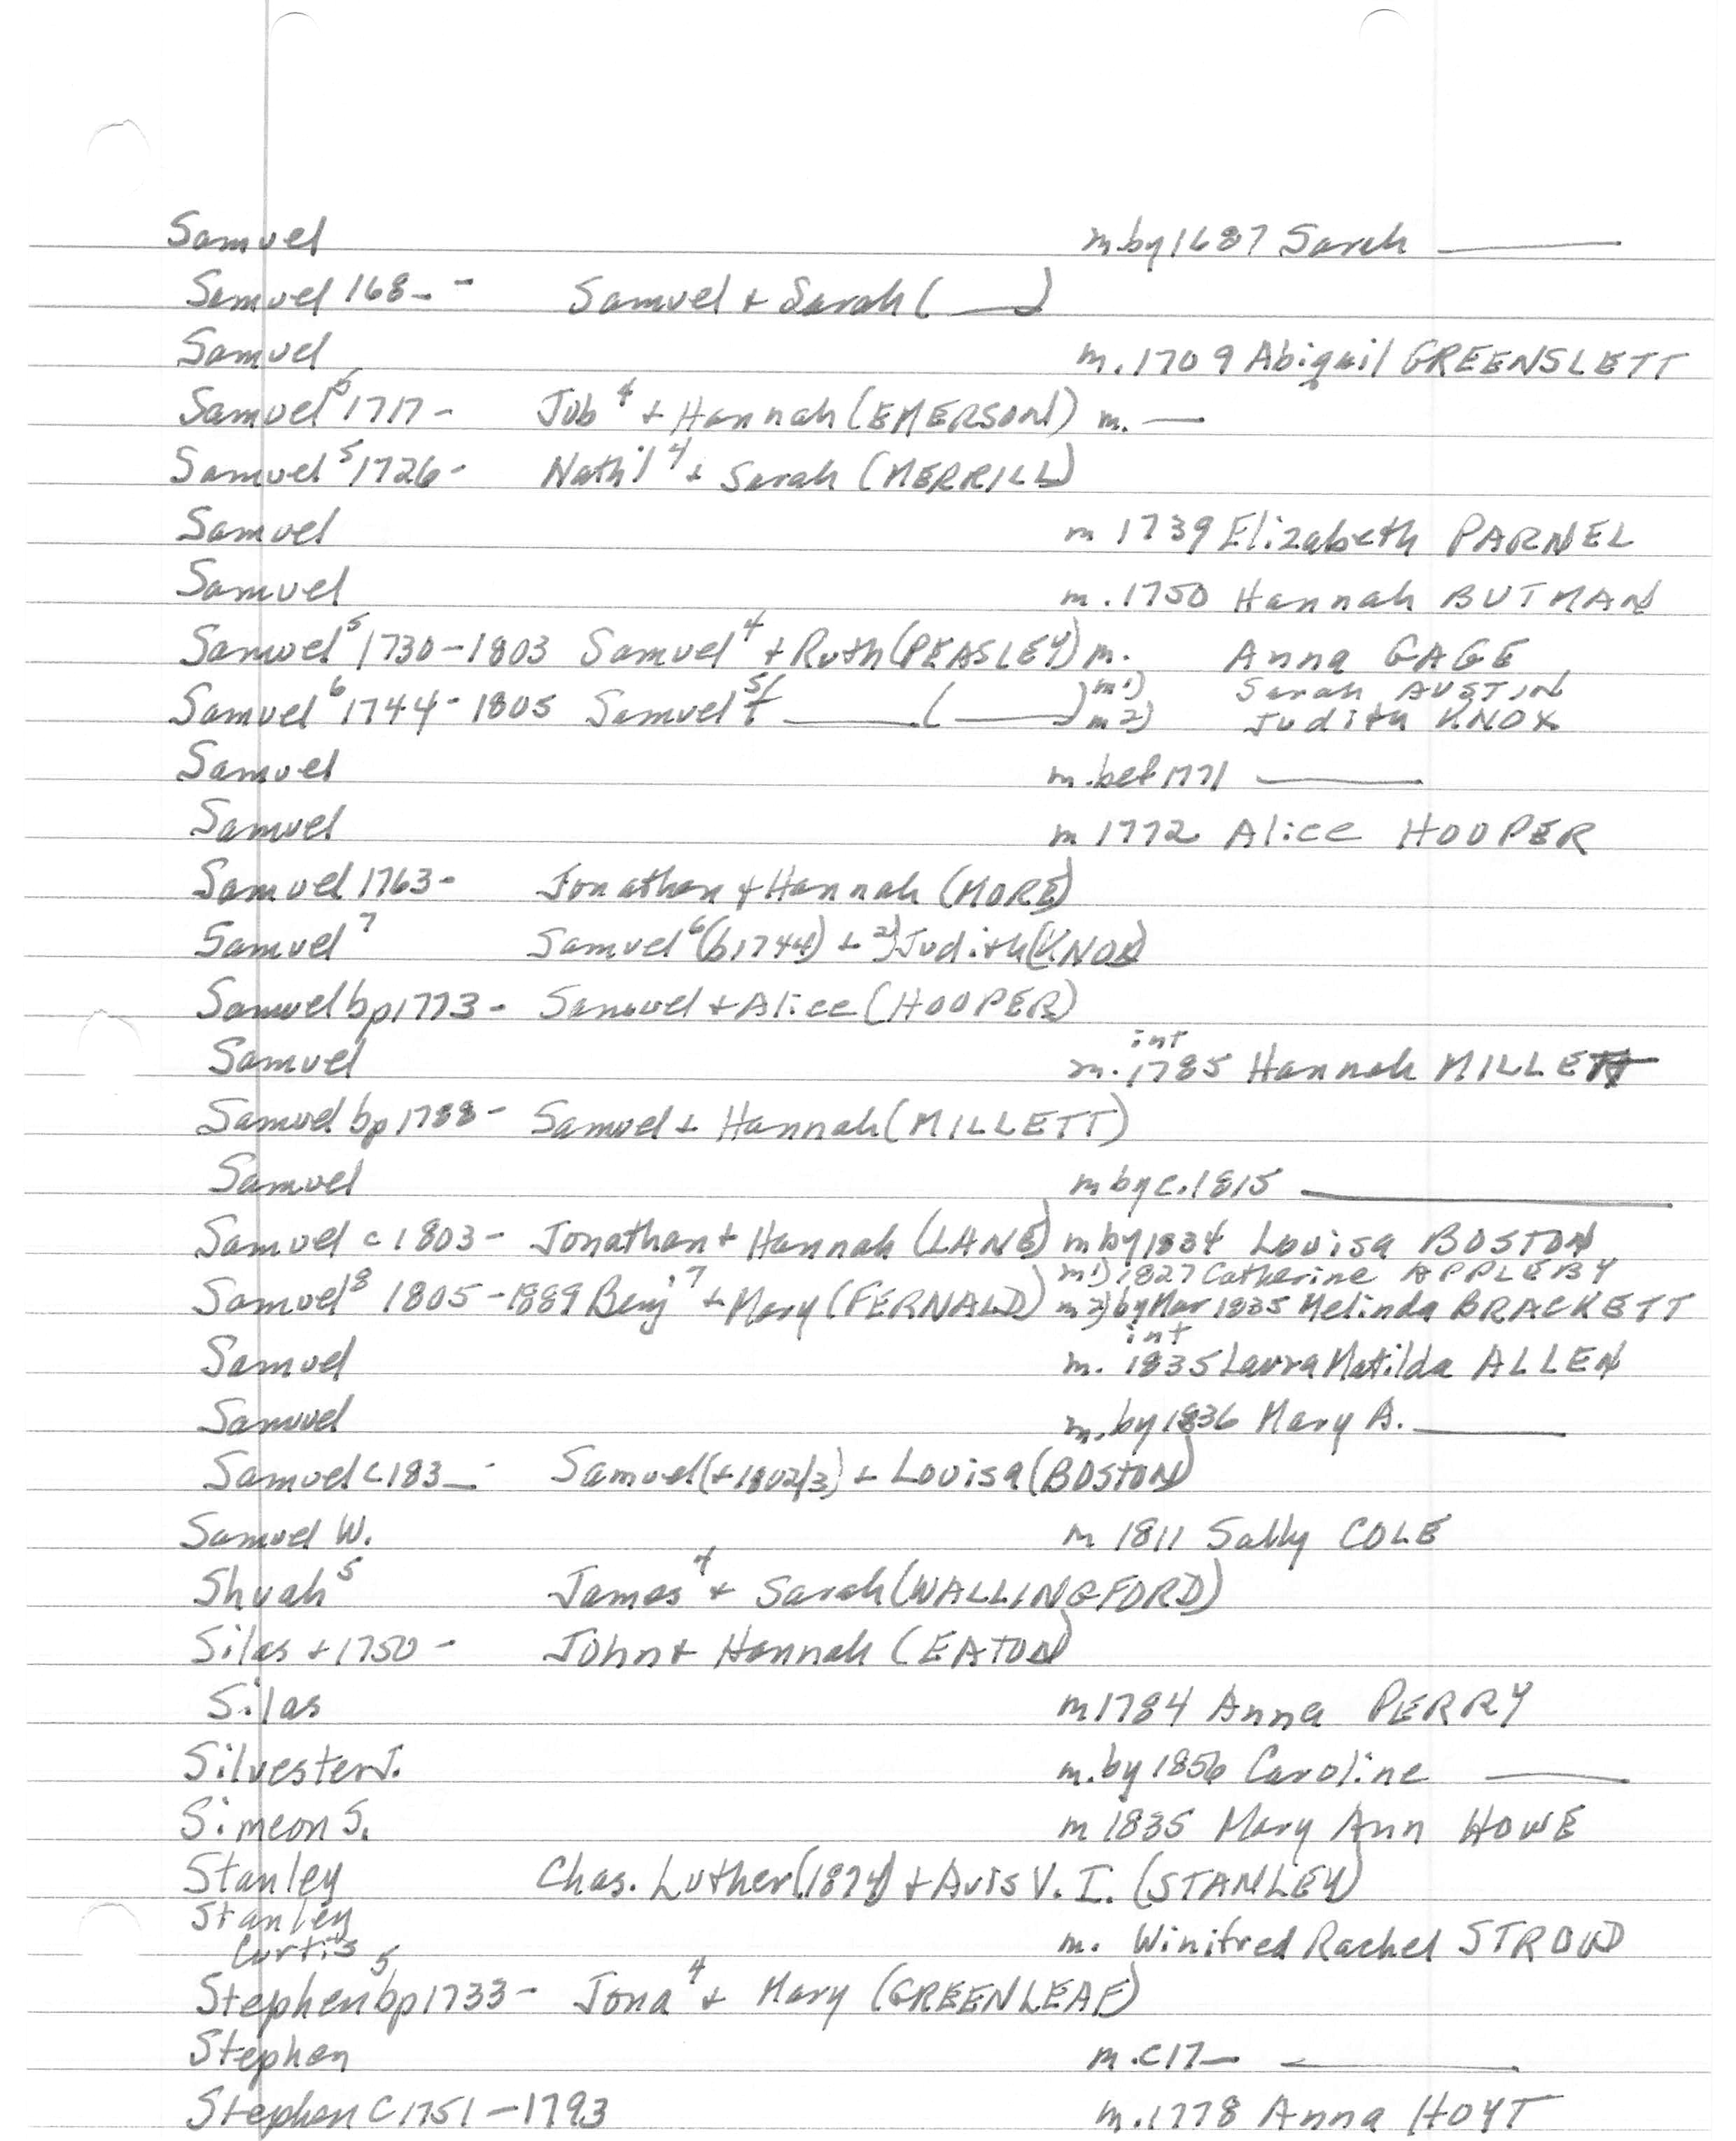 Samuel m. by 1687 Sarah ____
Samuel 168_ - Samuel + Sarah (____)
Samuel m. 1709 Abigail GREENSLETT
Samuel⁵ 1717 - Job⁴ + Hannah (EMERSON) m. —
Samuel⁵ 1726 - Nath'l⁴ + Sarah (MERRILL)
Samuel m 1739 Elizabeth PARNEL
Samuel m. 1750 Hannah BUTMAN
Samuel⁵ 1730-1803 Samuel⁴ + Ruth (PEASLEY) m. Anna GAGE
Samuel⁶ 1744-1805 Samuel⁵ + ____ (____) m1) Sarah AUSTIN
m2) Judith KNOX
Samuel m. bef 1771 ____
Samuel m 1772 Alice HOOPER
Samuel 1763 - Jonathan + Hannah (MORE)
Samuel⁷ Samuel⁶ (b1744) + 2) Judith (KNOX)
Samuel bp 1773 - Samuel + Alice (HOOPER)
Samuel m. int 1785 Hannah MILLETT
Samuel bp 1788 - Samuel + Hannah (MILLETT)
Samuel m by c. 1815 ____
Samuel c 1803 - Jonathan + Hannah (LANE) m by 1834 Louisa BOSTON
Samuel⁸ 1805-1889 Benj⁷ + Mary (FERNALD) m1) 1827 Catherine APPLEBY
m2) by Mar 1835 Melinda BRACKETT
Samuel m. int 1835 Laura Matilda ALLEN
Samuel m. by 1836 Mary A. ____
Samuel c 183_ - Samuel (+1802/3) + Louisa (BOSTON)
Samuel W. m 1811 Sally COLE
Shuah⁵ James⁴ + Sarah (WALLINGFORD)
Silas +1750 - John + Hannah (EATON)
Silas m 1784 Anna PERRY
Silvester J. m. by 1856 Caroline ____
Simeon S. m 1835 Mary Ann HOWE
Stanley Chas. Luther (1874) + Avis V. I. (STANLEY)
Stanley
Curtis m. Winifred Rachel STROUD
Stephen⁵ bp 1733 - Jona⁴ + Mary (GREENLEAF)
Stephen m. c 17— ____
Stephen c 1751-1793 m. 1778 Anna HOYT